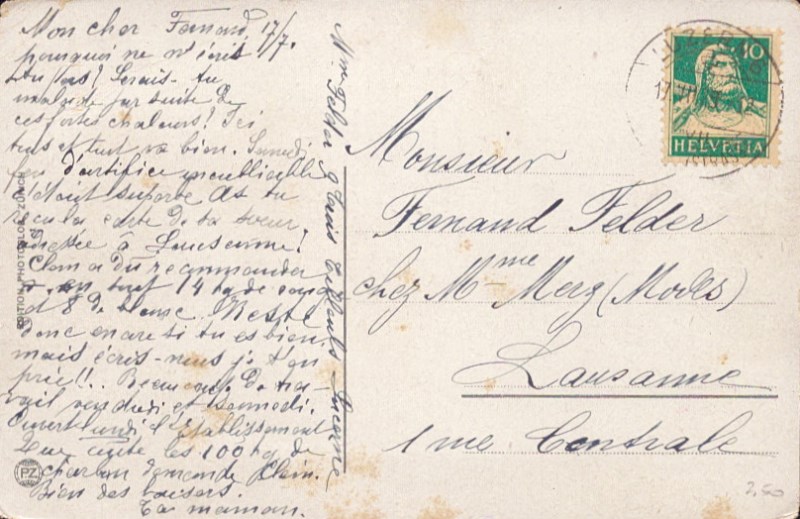 Mon cher Fernand, 17/7.
pourquoi ne m'écris
tu pas? Serais-tu
malade par suite de
ces fortes chaleurs? Ici
tous et tout va bien. Samedi
feu d'artifice inoubliable
c'était superbe As tu
reçu la carte de ta soeur
adressée à Lausanne?
14 kg de
et 8 de blanc
donc encore si tu es bien,
mais écris-nous je t'en
prie!!. Beaucoup de tra-
vail vendredi et samedi.
Ouvert lundi l'Etablissement
les 100 kg de
charbon demande
Bien des baisers.
Ta maman.
Mme Felder Lucerne
EDITION PHOTOGLOB ZÜRICH
PZ
10
HELVETIA
Monsieur
Fernand Felder
chez Mme Merz (Modes)
Lausanne
1 me Centrale
2,50